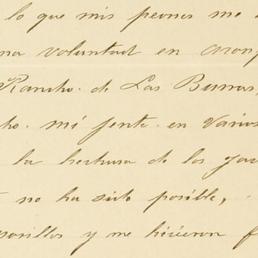 lo que mis peones me
na voluntad en acom
Rancho de Las Burras,
ho. mi gente en varios
la hechura de los
no ha sido posible,
y me hicieron f